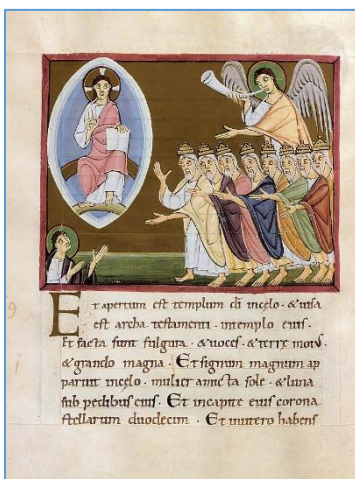 Et apertum est templum di incelo · & uisa
est archa testamenti · intemplo eius ·
Et facta sunt fulgura · & uoces · & terrę motus
& grando magna · Et signum magnum ap
paruit incelo · mulier amicta sole · & luna
sub pedibus eius · Et incapite eius corona
stellarum duodecim · Et inutero habens